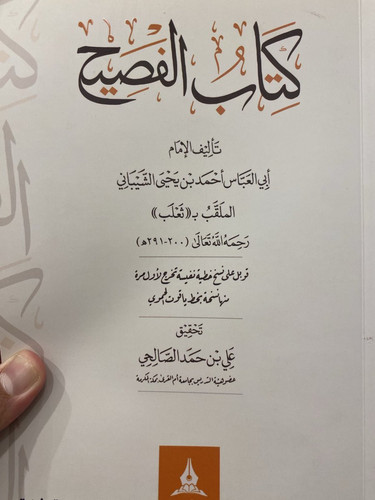 كِتَابُ الفَصِيحِ
تَأليفُ الإمَام
أَبي العَبَّاس أَحْمَد بْن يَحْيَى الشَّيْبَانِي
الملَقَّبُ بـ «ثَعْلَب»
رَحِمَهُ اللَّهُ تَعَالَى (٢٠٠-٢٩١هـ)
قوبل على نسخ خطية نفيسة تخرج لأول مرة
منها نسخة بخط ياقوت الحموي
تَحْقِيق
عَلِي بْن حَمَد الصَّالِحِي
عضو هيئة التدريس بجامعة أم القرى بمكة المكرمة